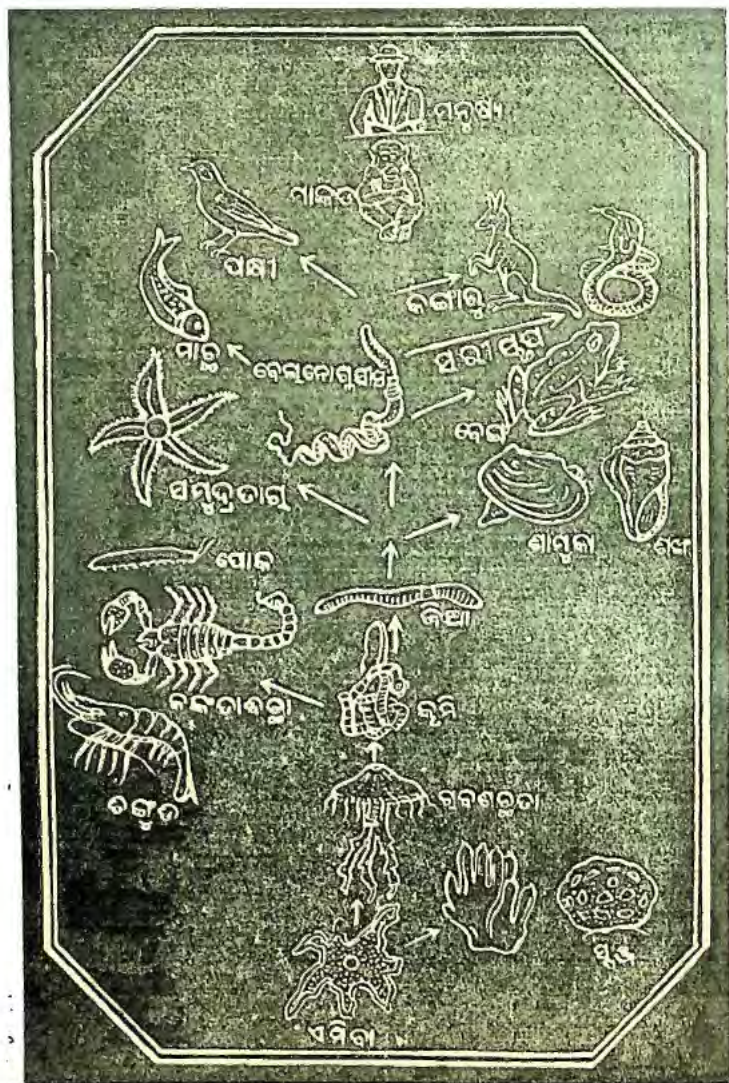 ମନୁଷ୍ୟ
ମାଙ୍କଡ
ପକ୍ଷୀ
କଙ୍ଗାରୁ
ମାଛ
ସରୀସୃପ
ବେଙ୍ଗ
ସମୁଦ୍ରତାରା
ଶାମୁକା
ଶଙ୍ଖ
ପୋକ
ଜିଆ
କଙ୍କଡାବିଛା
କୃମି
ଚିଙ୍ଗୁଡି
ସ୍ପଞ୍ଜ
ଏମିବା